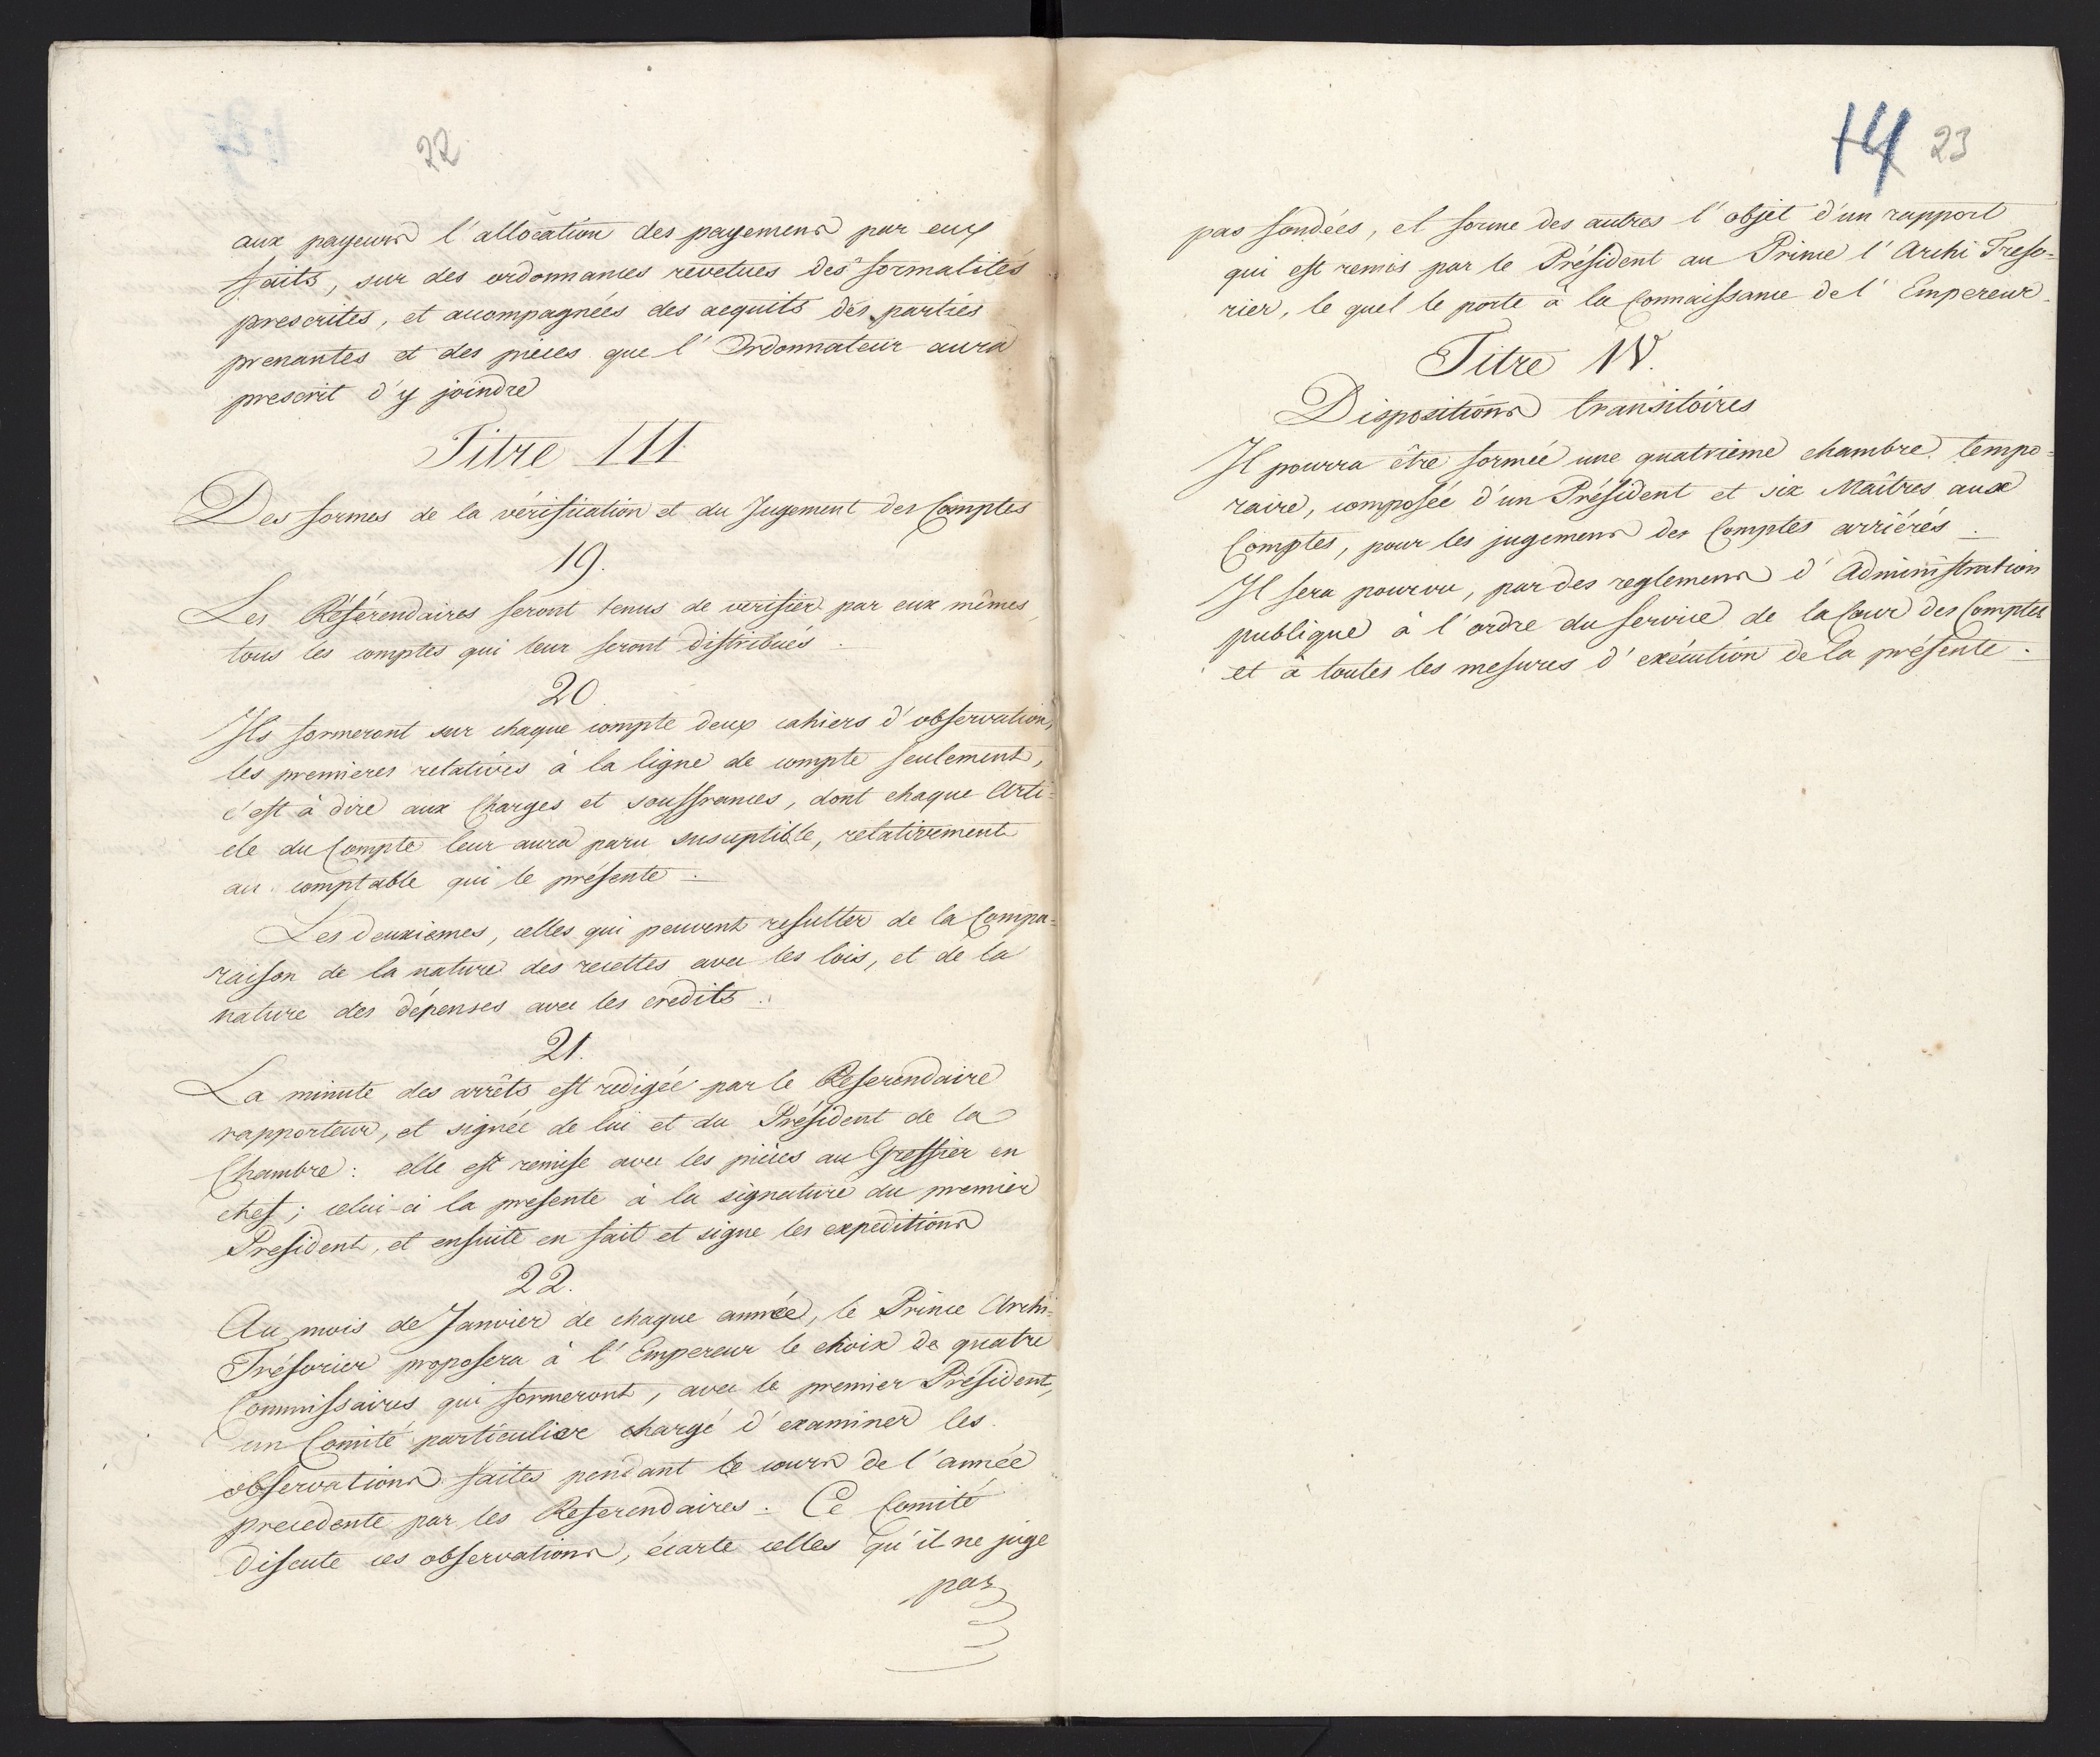 22
aux payeurs l'allocation des payemens par eux
faits, sur des ordonnances revetues des formalités
prescrites, et accompagnées des acquits des parties
prenantes et des pièces que l'Ordonnateur aura
prescrit d'y joindre
Titre III
Des formes de la vérification et du Jugement des Comptes
19.
Les Référendaires seront tenus de verifier par eux mêmes,
tous les comptes qui leur seront distribués.
20
Ils formeront sur chaque compte deux cahiers d'observation,
les premieres relatives à la ligne de compte seulement,
c'est à dire aux Charges et souffrances, dont chaque Arti=
cle du Compte leur aura paru susceptible, relativement
au comptable qui le présente.
Les deuxiemes, celles qui peuvent resulter de la Compa=
raison de la nature des recettes avec les lois, et de la
nature des dépenses avec les credits.
21.
La minute des arrêts est redigée par le Referendaire
rapporteur, et signée de lui et du Président de la
Chambre: elle est remise avec les pièces au Greffier en
chef; celui-ci la presente à la signature du premier
President, et ensuite en fait et signe les expeditions
22.
Au mois de Janvier de chaque année, le Prince Archi=
Trésorier proposera à l'Empereur le choix de quatre
Commissaires qui formeront, avec le premier Président,
un Comité particulier chargé d'examiner les
observations faites pendant le cours de l'année
precedente par les Referendaires. Ce Comité
discute ces observations, écarte celles qu'il ne juge
pas
14 23
pas fondées, et forme des autres l'objet d'un rapport
qui est remis par le Président au Prince l'Archi Treso=
rier, le quel le porte à la Connaissance de l'Empereur.
Titre IV.
Dispositions transitoires
Il pourra être formée une quatrieme chambre tempo=
raire, composée d'un Président et six Maîtres aux
Comptes, pour les jugemens des Comptes arriérés.
Il sera pourvu, par des reglemens d'Administration
publique à l'ordre du service de la Cour des Comptes
et à toutes les mesures d'exécution de la présente.